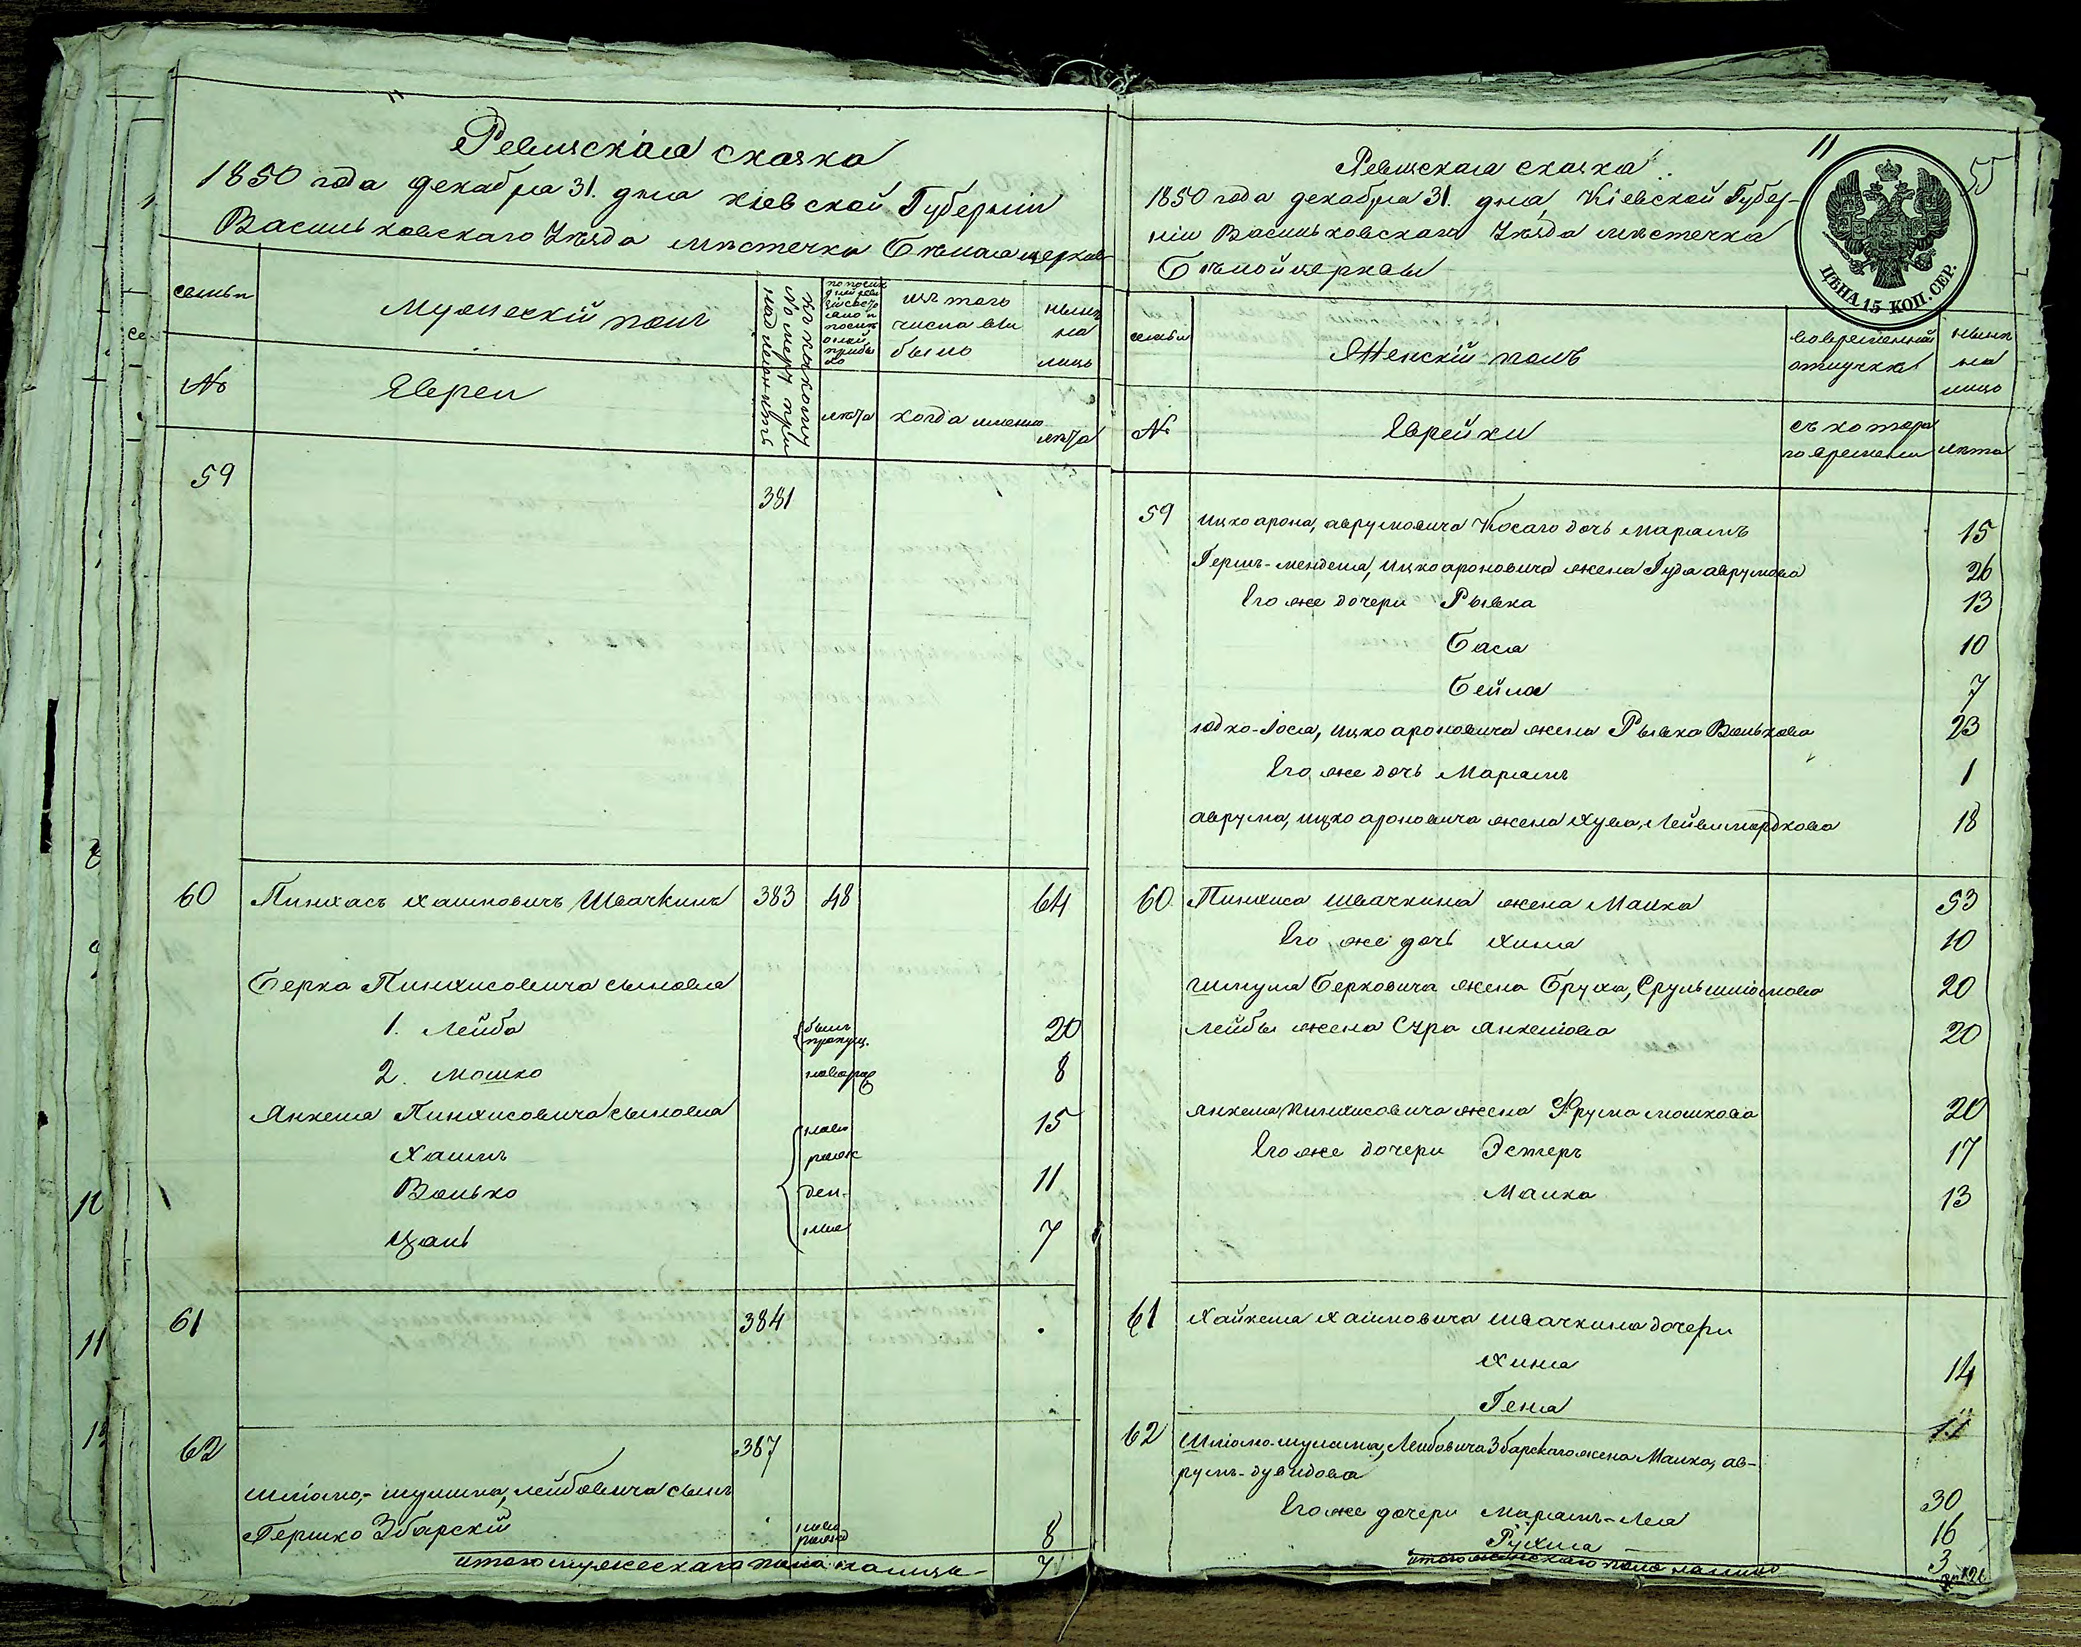 11
Ревизская сказка
1850 года декабря 31. дня Кіевской Губерніи
Васильковскаго Уѣзда мѣстечка Бѣлая церковь
семьи
Мужескій полъ
изъ того
числа вы
было
нынѣ
на
лицо
№
Евреи
лѣта
когда именно
лѣта
59
381
60 Пинхасъ Хаимовичъ Швачкинъ 383 48 64
Берка Пинхисовича сыновья
1. Лейба былъ пропущ. 20
2. Мошко новорож 8
Янкеля Пинхисовича сыновья ново 15
Хаимъ рож
Волько ден- 11
Цаль ные 7
61 384
62 387
Шліомо-шулима, Лейбовича сынъ
Гершко Збарскій ново рожд 8
итого мужескаго пола налицо 7
11
55
Ревизская сказка
1850 года декабря 31. дня, Кіевской Губер-
ніи Васильковскаго Уѣзда мѣстечка
Бѣлой церкви
ЦѢНА 15 КОП. СЕР.
семьи
Женскій полъ
во временной
отлучкѣ
нынѣ
на
лицо
№
Еврейки
съ котора
го времени
лѣта
59 Ицко арона, аврумовича Косаго дочь Маріамъ 15
Гершъ-менделя, Ицко ароновича жена Гуда аврумова 26
Его же дочери Рывка 13
Бася 10
Бейла 7
Юдко-Лоса, Ицко ароновича жена Рывка Волькова 23
Его же дочь Маріамъ 1
аврума, Ицко ароновича жена Хува, Лейвимордкова 18
60 Пинхиса Швачкина жена Малка 53
Его же дочь Хина 10
Шмуля Берковича жена Бруха, Срульшліомова 20
Лейбы жена Сура Янкелова 20
Янкеля Пинхисовича жена Фрума мошкова 20
Его же дочери Эстеръ 17
Малка 13
61 Хайкеля Хаимовича Швачкина дочери
Хина 14
Геня 11
62 Шліомо-шулима, Лейбовича Збарскаго жена Малка, ав-
румъ-дувидова 30
Его же дочери Маріамъ-Лея 16
Рухля 3
итого женскаго пола налицо